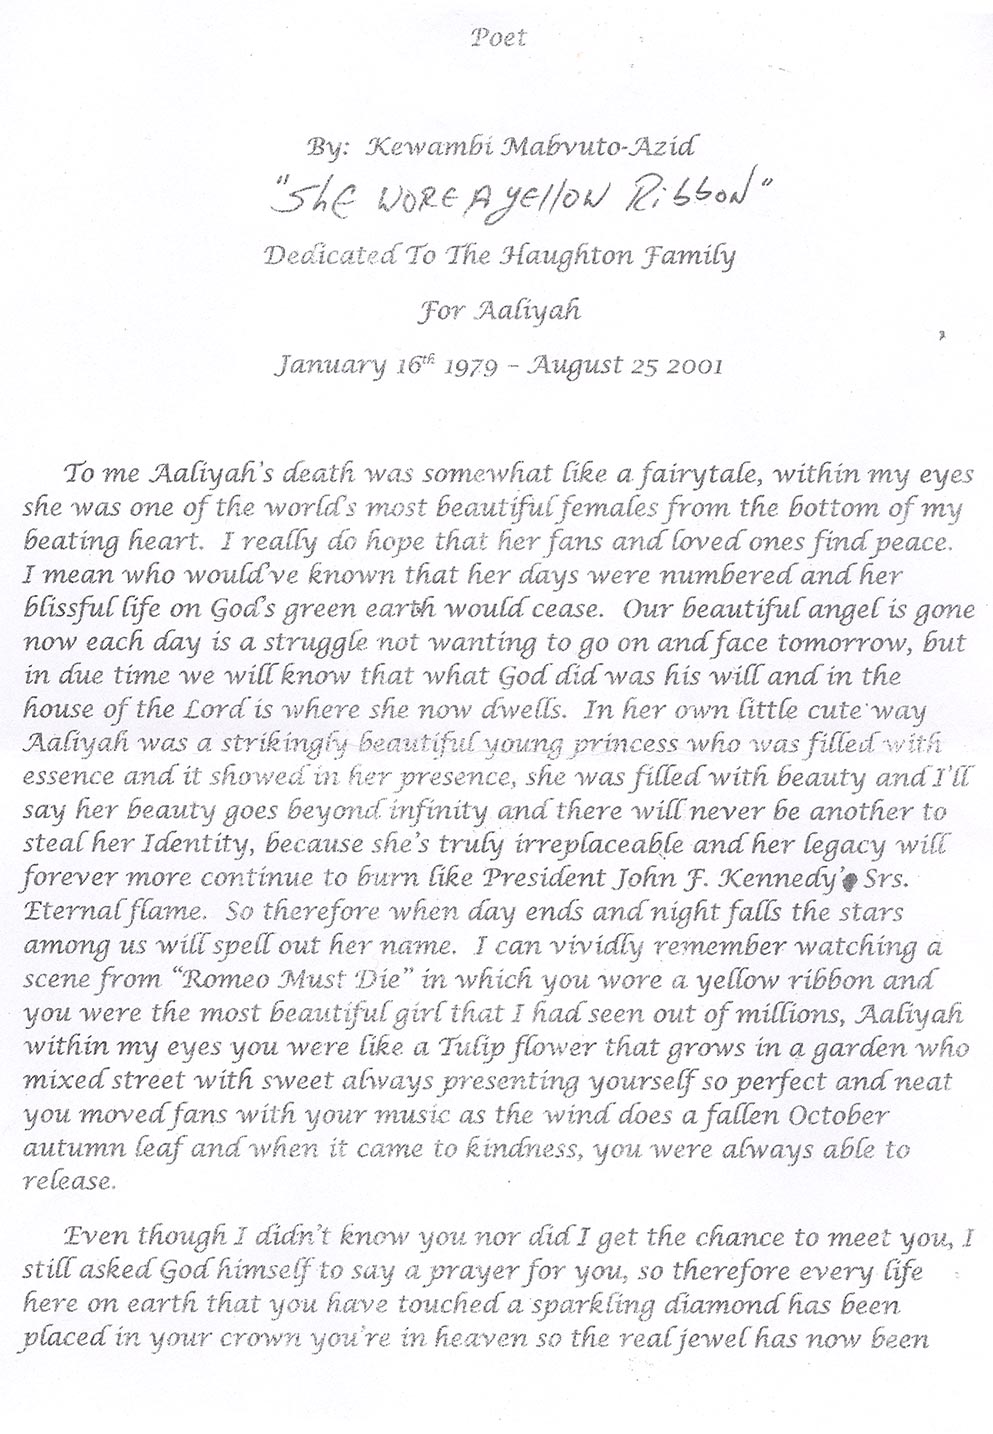 Poet
By: Kewambi Mabvuto-Azid
"She WORE A yellow Ribbon"
Dedicated To The Haughton Family
For Aaliyah
January 16th 1979 – August 25 2001
To me Aaliyah's death was somewhat like a fairytale, within my eyes
she was one of the world's most beautiful females from the bottom of my
beating heart. I really do hope that her fans and loved ones find peace.
I mean who would've known that her days were numbered and her
blissful life on God's green earth would cease. Our beautiful angel is gone
now each day is a struggle not wanting to go on and face tomorrow, but
in due time we will know that what God did was his will and in the
house of the Lord is where she now dwells. In her own little cute way
Aaliyah was a strikingly beautiful young princess who was filled with
essence and it showed in her presence, she was filled with beauty and I'll
say her beauty goes beyond infinity and there will never be another to
steal her Identity, because she's truly irreplaceable and her legacy will
forever more continue to burn like President John F. Kennedy' Srs.
Eternal flame. So therefore when day ends and night falls the stars
among us will spell out her name. I can vividly remember watching a
scene from "Romeo Must Die" in which you wore a yellow ribbon and
you were the most beautiful girl that I had seen out of millions, Aaliyah
within my eyes you were like a Tulip flower that grows in a garden who
mixed street with sweet always presenting yourself so perfect and neat
you moved fans with your music as the wind does a fallen October
autumn leaf and when it came to kindness, you were always able to
release.
Even though I didn't know you nor did I get the chance to meet you, I
still asked God himself to say a prayer for you, so therefore every life
here on earth that you have touched a sparkling diamond has been
placed in your crown you're in heaven so the real jewel has now been